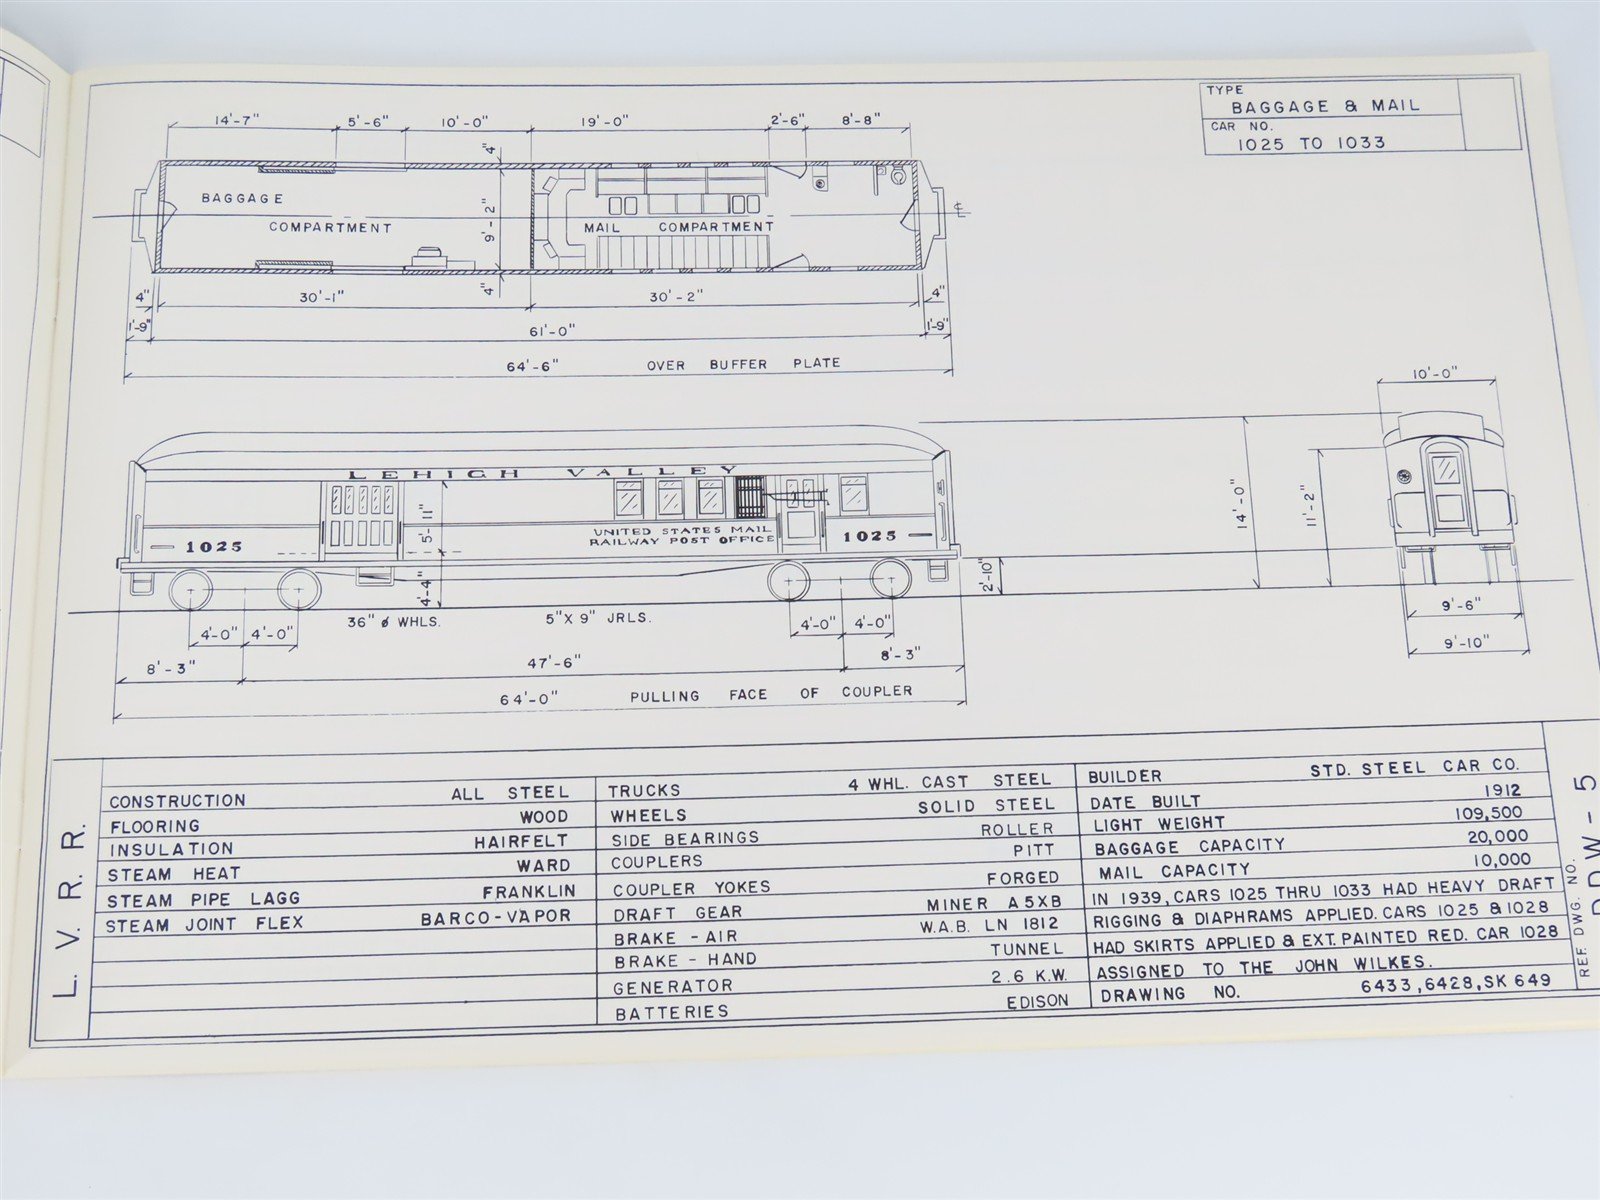 TYPE
BAGGAGE & MAIL
CAR NO.
1025 TO 1033
14'-7" 5'-6" 10'-0" 19'-0" 2'-6" 8'-8"
4"
BAGGAGE
COMPARTMENT
9'-2"
MAIL COMPARTMENT
4"
4" 30'-1" 30'-2" 4"
1'-9" 61'-0" 1'-9"
64'-6" OVER BUFFER PLATE
10'-0"
LEHIGH VALLEY
5'-11"
UNITED STATES MAIL
RAILWAY POST OFFICE
1025 1025
14'-0"
11'-2"
4'-4" 2'-10"
36" ø WHLS. 5" X 9" JRLS.
4'-0" 4'-0" 4'-0" 4'-0"
9'-6"
9'-10"
8'-3" 47'-6" 8'-3"
64'-0" PULLING FACE OF COUPLER
L. V. R. R.
CONSTRUCTION ALL STEEL
FLOORING WOOD
INSULATION HAIRFELT
STEAM HEAT WARD
STEAM PIPE LAGG FRANKLIN
STEAM JOINT FLEX BARCO-VAPOR
TRUCKS 4 WHL. CAST STEEL
WHEELS SOLID STEEL
SIDE BEARINGS ROLLER
COUPLERS PITT
COUPLER YOKES FORGED
DRAFT GEAR MINER A5XB
BRAKE - AIR W.A.B. LN 1812
BRAKE - HAND TUNNEL
GENERATOR 2.6 K.W.
BATTERIES EDISON
BUILDER STD. STEEL CAR CO.
DATE BUILT 1912
LIGHT WEIGHT 109,500
BAGGAGE CAPACITY 20,000
MAIL CAPACITY 10,000
IN 1939, CARS 1025 THRU 1033 HAD HEAVY DRAFT
RIGGING & DIAPHRAMS APPLIED. CARS 1025 & 1028
HAD SKIRTS APPLIED & EXT. PAINTED RED. CAR 1028
ASSIGNED TO THE JOHN WILKES.
DRAWING NO. 6433, 6428, SK 649
REF. DWG. NO.